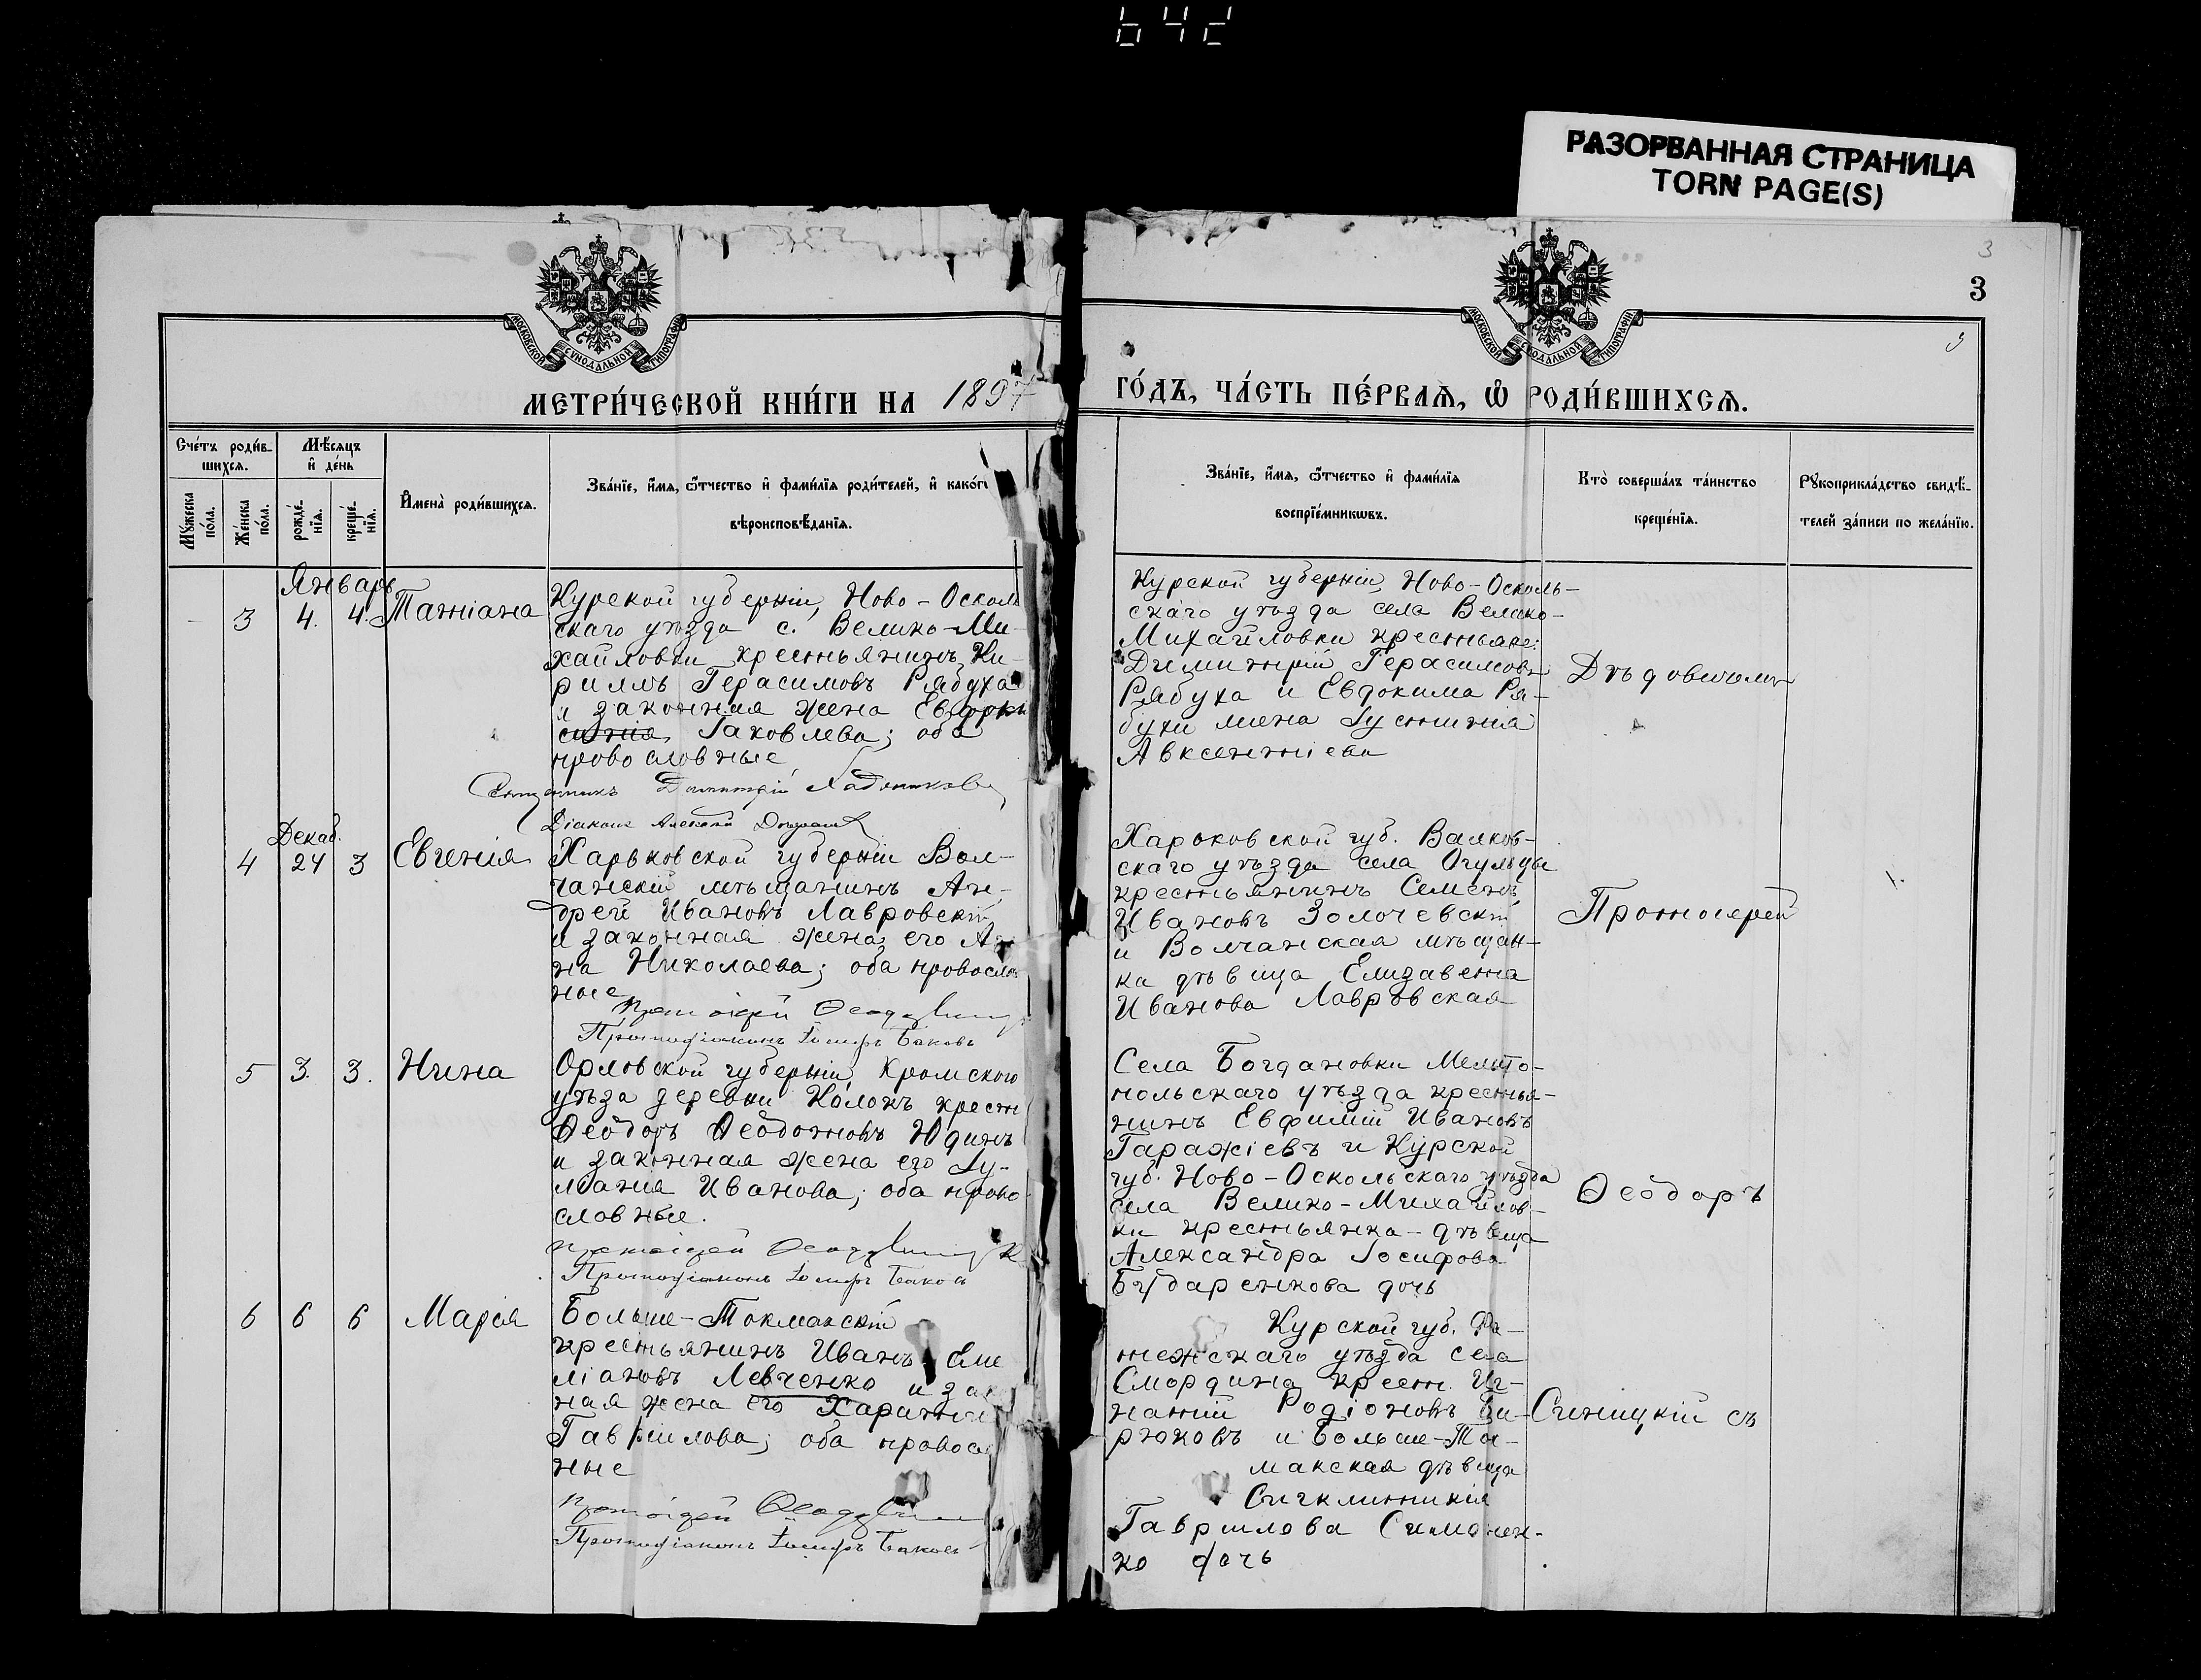 642
РАЗОРВАННАЯ СТРАНИЦА
TORN PAGE(S)
3
3
МОСКОВСКОЙ СѴНОДАЛЬНОЙ ТИПОГРАФІИ
МОСКОВСКОЙ СѴНОДАЛЬНОЙ ТИПОГРАФІИ
МЕТРИ́ЧЕСКОЙ КНИ́ГИ НА 1897 ГО́ДЪ, ЧА́СТЬ ПЕ́РВАѦ, Ѡ РОДИ́ВШИХСѦ.
Сче́тъ роди́в-
шихсѧ.
Мѣ́сѧцъ
и҆ де́нь
Мꙋ́жеска
по́ла.
Же́нска
по́ла.
рожде́-
нїѧ.
креще́-
нїѧ.
И҆мена̀ роди́вшихсѧ.
Зва́нїе, и҆́мѧ, ѻ҆́тчество и҆ фами́лїѧ роди́телей, и҆ како́гѡ
вѣроисповѣ́данїѧ.
Зва́нїе, и҆́мѧ, ѻ҆́тчество и҆ фами́лїѧ
воспрїе́мникѡвъ.
Кто̀ соверша́лъ та́инство
креще́нїѧ.
Рꙋкоприкла́дство свидѣ́-
телей за́писи по жела́нїю.
Январь
3 4. 4. Татіана
Курской губерніи, Ново-Осколь
скаго уѣзда с. Велико-Ми-
хайловки крестьянинъ Ки-
риллъ Герасимовъ Рябуха
и законная жена Евфро
Іаковлева; оба
православные
Священникъ Димитрій
Діаконъ Алексій
Курской губерніи, Ново-Осколь-
скаго уѣзда села Велико-
Михайловки крестьяне:
Димитрій Герасимовъ
Рябуха и Евдокима Ря-
бухи жена Іустинія
Авксентіева
Декаб.
4 24 3 Евгенія
Харьковской губерніи Вол-
чанскій мѣщанинъ Ан-
дрей Ивановъ Лавровскій
и законная жена его Ан
на Николаева; оба православ
ные
Протоіерей Ѳеодоръ
Протодіаконъ Іосифъ Баковъ
Харьковской губ. Валков-
скаго уѣзда села Огульцы
крестьянинъ Семенъ
Ивановъ Золочевскій
и Волчанская мѣщан-
ка дѣвица Елизавета
Иванова Лавровская
Протоіерей
5 3. 3. Нина
Орловской губерніи, Кромского
уѣзда деревни Колокъ крест
Ѳеодоръ Ѳеодотовъ Юдинъ
и законная жена его Іу-
ліанія Иванова; оба право-
славные.
Протоіерей Ѳеодоръ
Протодіаконъ Іосифъ Баковъ
Села Богдановки Мелито-
польскаго уѣзда крестья-
нинъ Евфимій Ивановъ
Гаражіевъ и Курской
губ. Ново-Оскольскаго уѣзда
села Велико-Михайлов-
ки крестьянка-дѣвица
Александра Іосифова
Бударенкова дочь
Ѳеодоръ
6 6 6 Марія
Больше-Токмакскій
крестьянинъ Иванъ Еми
ліановъ Левченко и зак
ная жена его Харитин
Гавріилова; оба правосл
ные
Протоіерей Ѳеодоръ
Протодіаконъ Іосифъ Баковъ
Курской губ. Фа-
тежскаго уѣзда села
Смородина крест. Иг-
натій Родіоновъ Би-
рюковъ и Больше-Ток-
макская дѣвица
Сигклитикія
Гавріилова Симонен-
ко дочь
Синицкій съ